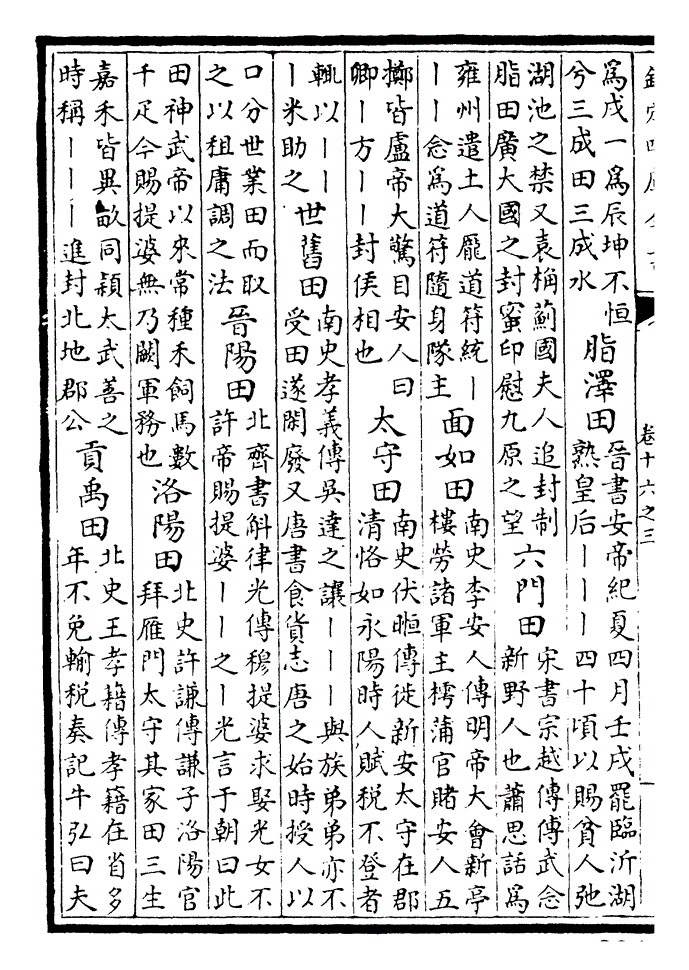 欽定四庫全書
卷十六之三
爲戊一爲辰坤不恒
兮三成田三成水
脂澤田
晉書安帝紀夏四月壬戌罷臨沂湖
熟皇后丨丨丨四十頃以賜貧人弛
湖池之禁又袁桷薊國夫人追封制
脂田廣大國之封蜜印慰九原之望
六門田
宋書宗越傳傳武念
新野人也蕭思話爲
雍州遣土人龎道符統丨
丨丨念爲道符隨身隊主
面如田
南史李安人傳明帝大會新亭
樓勞諸軍主樗蒲官賭安人五
擲皆盧帝大驚目安人曰
卿丨方丨丨封侯相也
太守田
南史伏暅傳徙新安太守在郡
清恪如永陽時人賦稅不登者
輒以丨丨
丨米助之
世舊田
南史孝義傳吳達之讓丨丨丨與族弟弟亦不
受田遂閑廢又唐書食貨志唐之始時授人以
口分世業田而取
之以租庸調之法
晉陽田
北齊書斛律光傳穆提婆求娶光女不
許帝賜提婆丨丨之丨光言于朝曰此
田神武帝以來常種禾飼馬數
千疋今賜提婆無乃闕軍務也
洛陽田
北史許謙傳謙子洛陽官
拜雁門太守其家田三生
嘉禾皆異畝同頴太武善之
時稱丨丨丨進封北地郡公
貢禹田
北史王孝籍傳孝籍在省多
年不免輸稅奏記牛弘曰夫